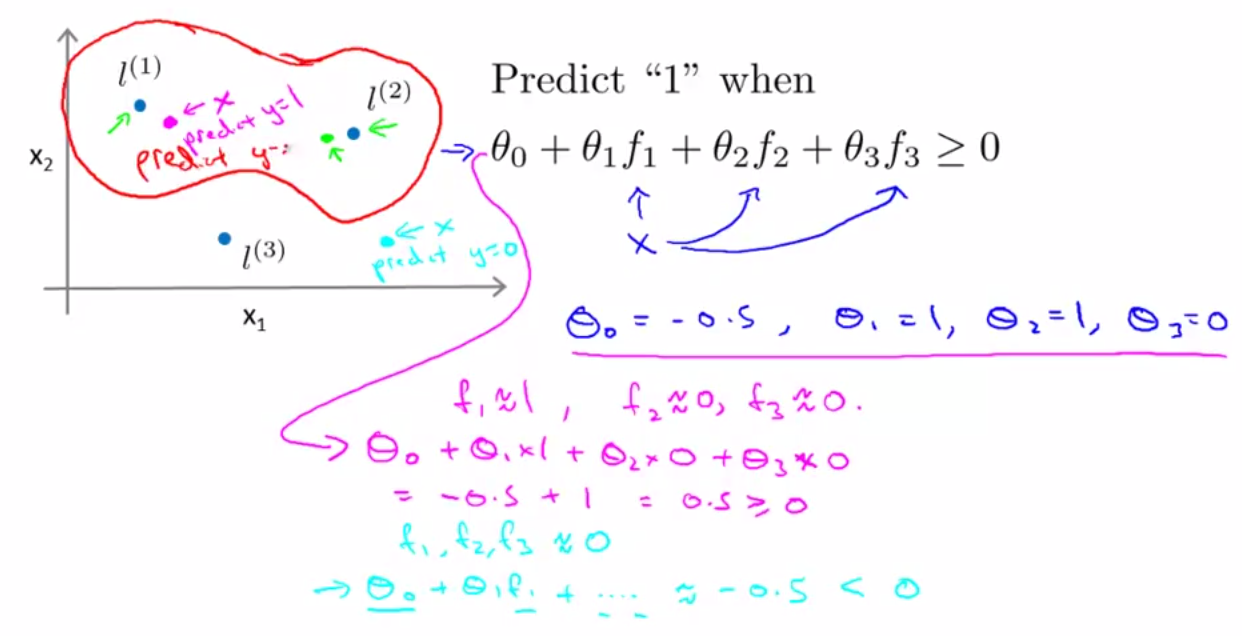 l⁽¹⁾
← x
predict y=1
l⁽²⁾
predict y=
x₂
l⁽³⁾
← x
predict y=0
x₁
Predict “1” when
→ θ₀ + θ₁f₁ + θ₂f₂ + θ₃f₃ ≥ 0
x
θ₀ = -0.5, θ₁ = 1, θ₂ = 1, θ₃ = 0
f₁ ≈ 1, f₂ ≈ 0, f₃ ≈ 0.
→ θ₀ + θ₁ × 1 + θ₂ × 0 + θ₃ × 0
= -0.5 + 1 = 0.5 ≥ 0
f₁, f₂, f₃ ≈ 0
→ θ₀ + θ₁f₁ + .... ≈ -0.5 < 0